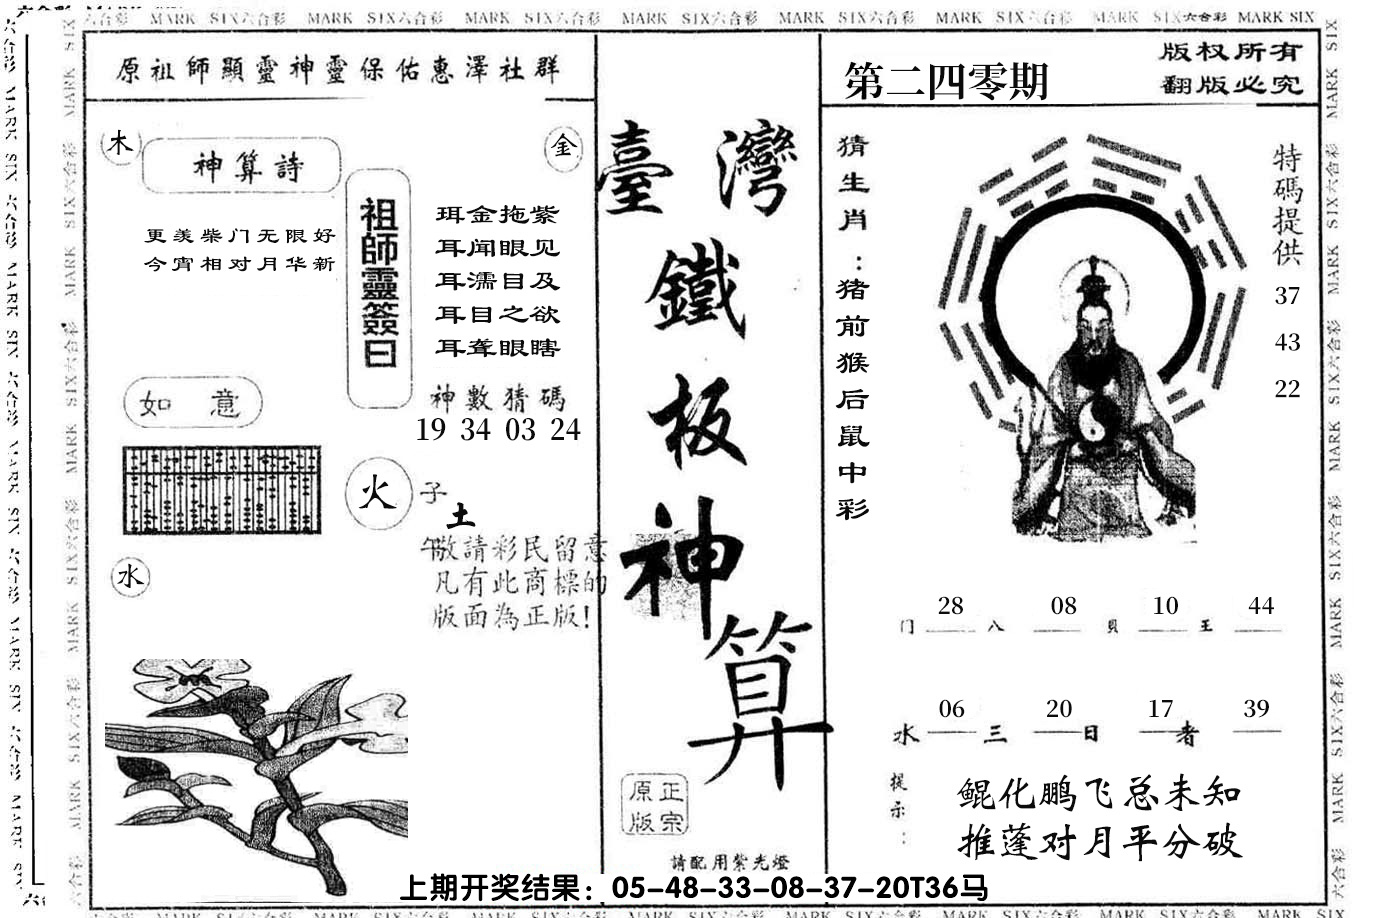 MARK SIX六合彩 MARK SIX六合彩 MARK SIX六合彩 MARK SIX六合彩 MARK SIX六合彩 MARK SIX六合彩 MARK SIX六合彩 MARK SIX
原祖師顯靈神靈保佑惠澤社群
木
金
神算詩
更羡柴门无限好
今宵相对月华新
祖師靈簽曰
珥金拖紫
耳闻眼见
耳濡目及
耳目之欲
耳聋眼瞎
神數猜碼
19 34 03 24
如 意
火
子
土
午
水
敬請彩民留意
凡有此商標的
版面為正版!
臺灣
鐵
板
神
算
正宗
原版
請配用紫光燈
第二四零期
版权所有
翻版必究
猜生肖:猪前猴后鼠中彩
特碼提供
37
43
22
28 08 10 44
门 八 貝 王
06 20 17 39
水 三 日 者
提示:
鲲化鹏飞总未知
推蓬对月平分破
上期开奖结果：05-48-33-08-37-20T36马